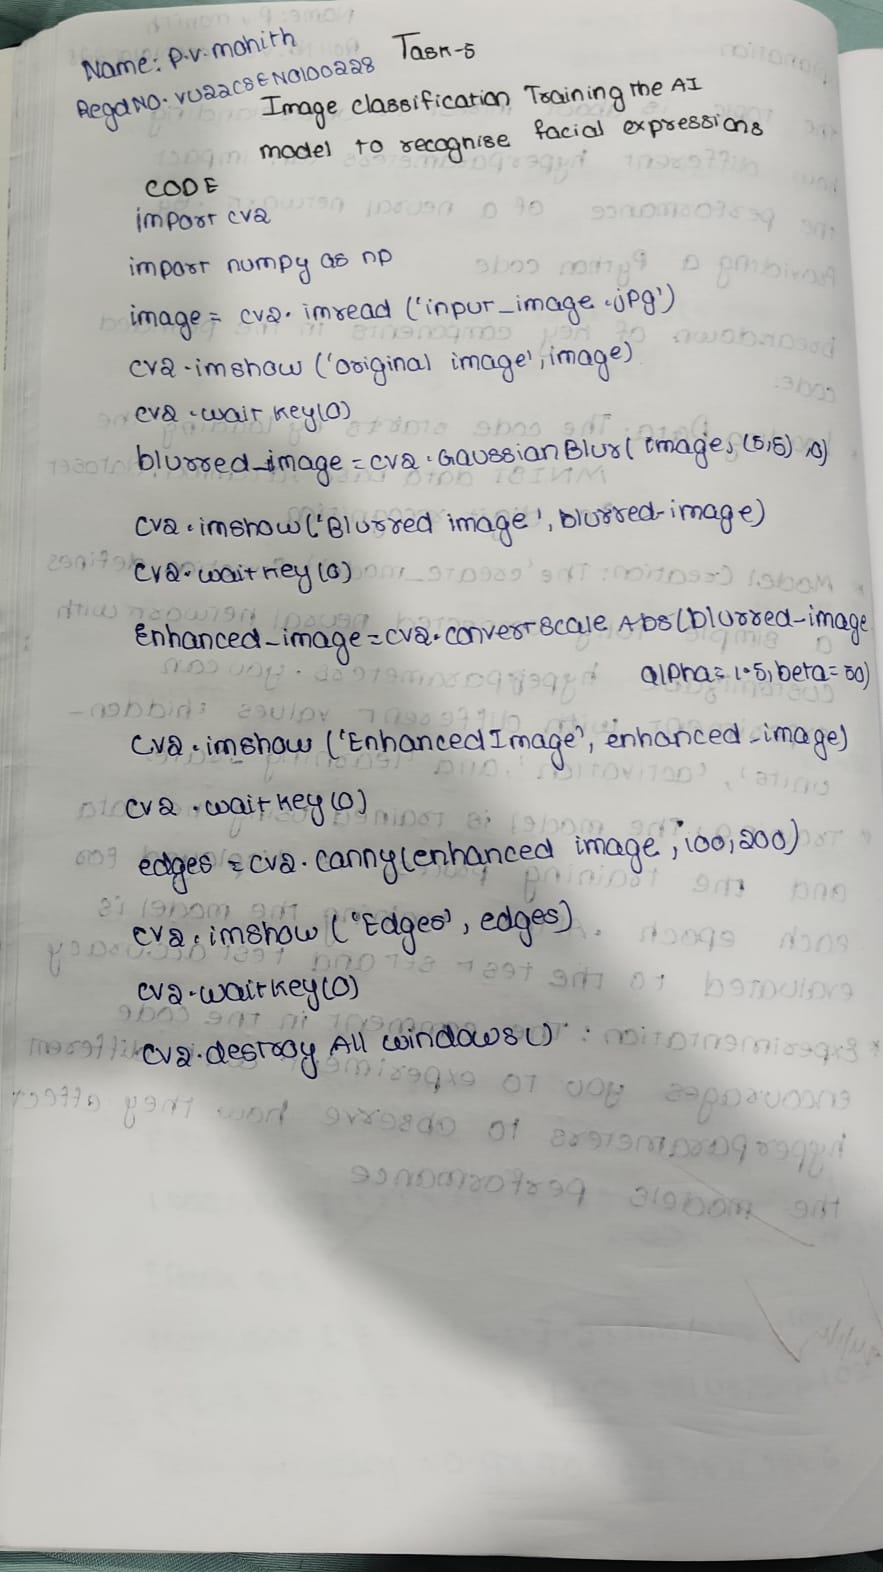 Name: P.V. mohith Task-5
Regd NO. VU22CSEN0100228
Image classification Training the AI
model to recognise facial expressions
CODE
import cv2
import numpy as np
image = cv2. imread ('input_image .jpg')
cv2.imshow ('original image', image)
cv2.wait key(0)
blurred_image = cv2.GaussianBlur( image, (5,5) ,0)
cv2.imshow('Blurred image', blurred-image)
cv2.waitkey(0)
Enhanced_image = cv2.convertscale Abs(blurred-image
alpha= 1.5, beta= 50)
cv2.imshow ('Enhanced Image', enhanced-image)
cv2.waitkey(0)
edges = cv2.canny(enhanced image, 100, 200)
cv2.imshow ('Edges', edges)
cv2.waitkey(0)
cv2.destroy All windows()